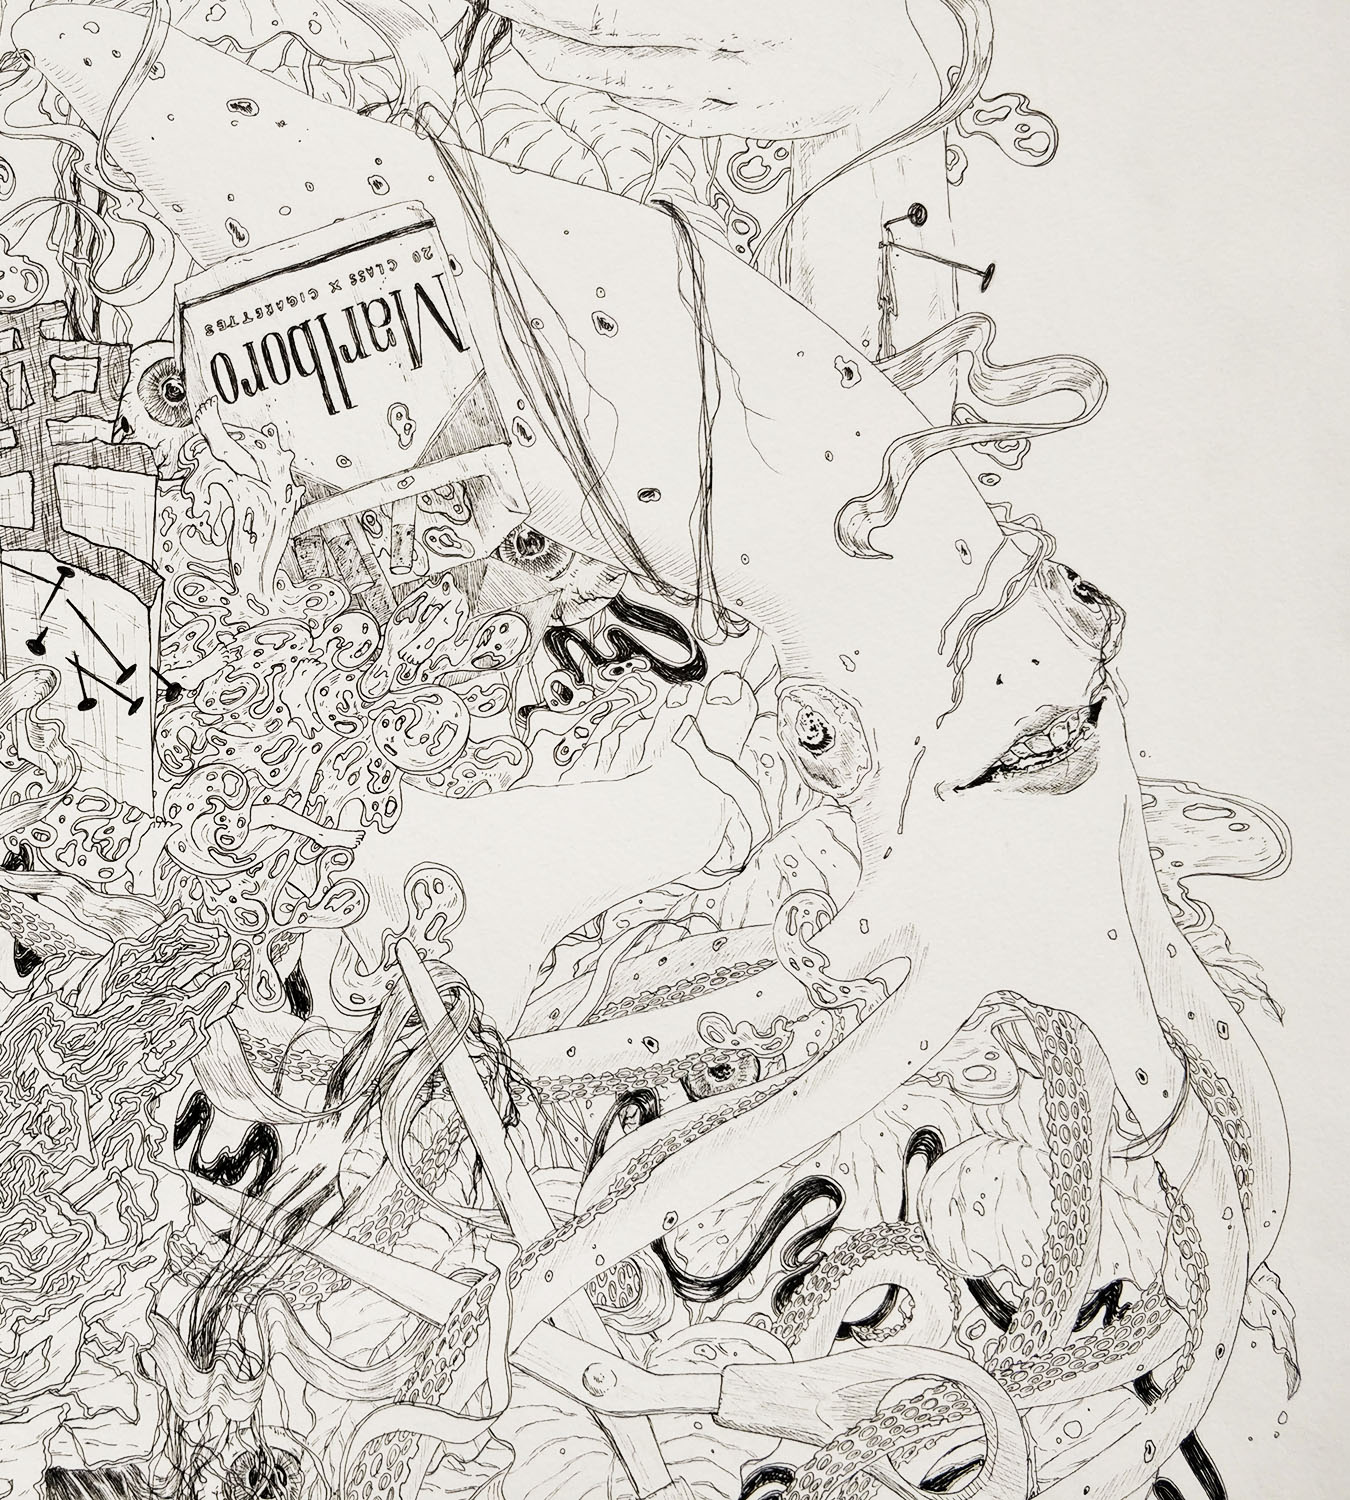 Marlboro
20 CLASS X CIGARETTES